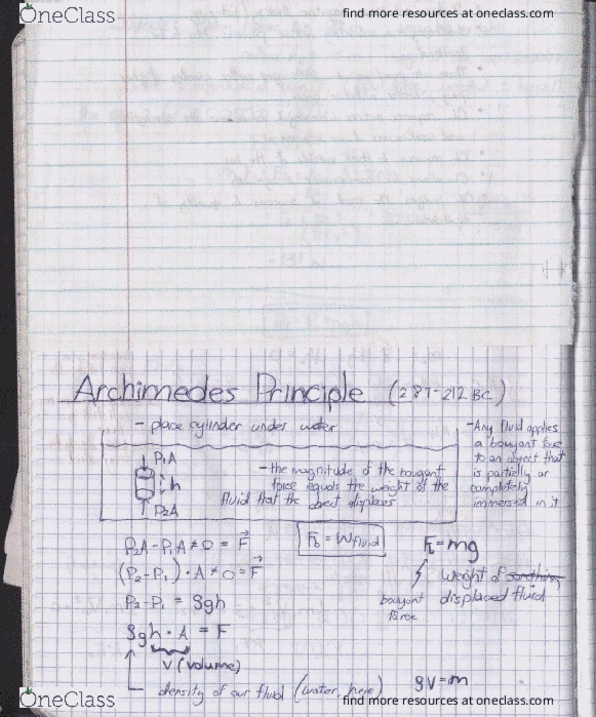 OneClass
find more resources at oneclass.com
Archimedes Principle (287-212 BC)
- place cylinder under water
P₁A
h
P₂A
- the magnitude of the bouyant
force equals the weight of the
fluid that the object displaces
- Any fluid applies
a bouyant force
to an object that
is partially or
completely
immersed in it
P₂A - P₁A ≠ 0 = F⃗
(P₂-P₁) · A ≠ 0 = F⃗
P₂ - P₁ = ρgh
ρgh · A = F
V (volume)
density of our fluid (water, here)
F_b = W_fluid
F_b = mg
bouyant
force
weight of
displaced fluid
ρV = m
OneClass
find more resources at oneclass.com